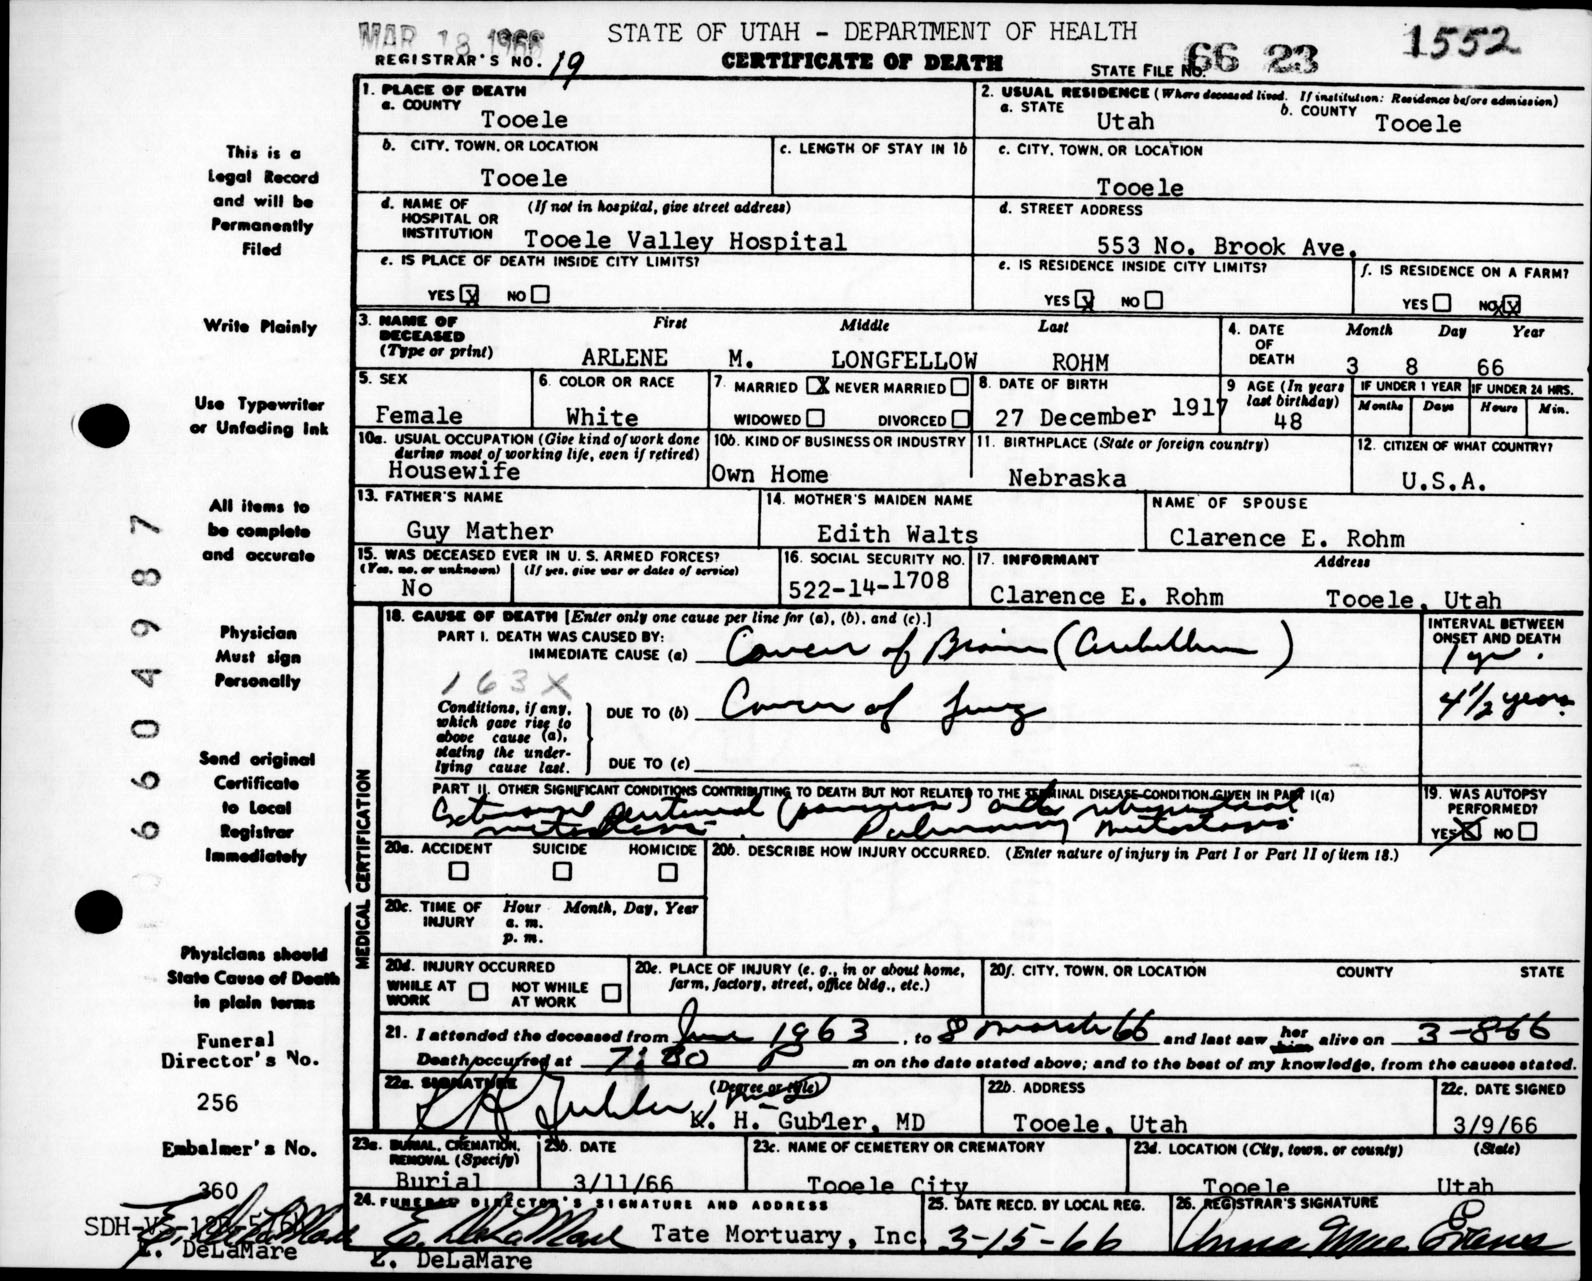 MAR 18 1966
STATE OF UTAH - DEPARTMENT OF HEALTH
1552
REGISTRAR'S NO. 19
CERTIFICATE OF DEATH
STATE FILE NO. 66 23
This is a
Legal Record
and will be
Permanently
Filed
Write Plainly
Use Typewriter
or Unfading Ink
All items to
be complete
and accurate
Physician
Must sign
Personally
Send original
Certificate
to Local
Registrar
Immediately
Physicians should
State Cause of Death
in plain terms
Funeral
Director's No.
256
Embalmer's No.
360
E. DeLaMare
660498 7
1. PLACE OF DEATH
a. COUNTY
Tooele
2. USUAL RESIDENCE (Where deceased lived. If institution: Residence before admission)
a. STATE
Utah
b. COUNTY
Tooele
b. CITY, TOWN, OR LOCATION
Tooele
c. LENGTH OF STAY IN 1b
c. CITY, TOWN, OR LOCATION
Tooele
d. NAME OF HOSPITAL OR INSTITUTION (If not in hospital, give street address)
Tooele Valley Hospital
d. STREET ADDRESS
553 No. Brook Ave.
e. IS PLACE OF DEATH INSIDE CITY LIMITS?
YES X NO
e. IS RESIDENCE INSIDE CITY LIMITS?
YES X NO
f. IS RESIDENCE ON A FARM?
YES NO XX
3. NAME OF DECEASED (Type or print)
First Middle Last
ARLENE M. LONGFELLOW ROHM
4. DATE OF DEATH
Month Day Year
3 8 66
5. SEX
Female
6. COLOR OR RACE
White
7. MARRIED X NEVER MARRIED
WIDOWED DIVORCED
8. DATE OF BIRTH
27 December 1917
9 AGE (In years last birthday)
48
IF UNDER 1 YEAR
Months Days
IF UNDER 24 HRS.
Hours Min.
10a. USUAL OCCUPATION (Give kind of work done during most of working life, even if retired)
Housewife
10b. KIND OF BUSINESS OR INDUSTRY
Own Home
11. BIRTHPLACE (State or foreign country)
Nebraska
12. CITIZEN OF WHAT COUNTRY?
U.S.A.
13. FATHER'S NAME
Guy Mather
14. MOTHER'S MAIDEN NAME
Edith Walts
NAME OF SPOUSE
Clarence E. Rohm
15. WAS DECEASED EVER IN U.S. ARMED FORCES?
(Yes, no, or unknown) (If yes, give war or dates of service)
No
16. SOCIAL SECURITY NO.
522-14-1708
17. INFORMANT Address
Clarence E. Rohm Tooele, Utah
MEDICAL CERTIFICATION
18. CAUSE OF DEATH [Enter only one cause per line for (a), (b), and (c).]
PART I. DEATH WAS CAUSED BY:
IMMEDIATE CAUSE (a) Cancer of Brain (Cerebellum)
INTERVAL BETWEEN ONSET AND DEATH
1 yr.
163X
Conditions, if any, which gave rise to above cause (a), stating the underlying cause last.
DUE TO (b) Cancer of Lung
4 1/2 years
DUE TO (c)
PART II. OTHER SIGNIFICANT CONDITIONS CONTRIBUTING TO DEATH BUT NOT RELATED TO THE TERMINAL DISEASE CONDITION GIVEN IN PART I(a)
metastasis. Pulmonary metastasis
19. WAS AUTOPSY PERFORMED?
YES X NO
20a. ACCIDENT SUICIDE HOMICIDE
20b. DESCRIBE HOW INJURY OCCURRED. (Enter nature of injury in Part I or Part II of item 18.)
20c. TIME OF INJURY Hour Month, Day, Year
a. m.
p. m.
20d. INJURY OCCURRED
WHILE AT WORK NOT WHILE AT WORK
20e. PLACE OF INJURY (e. g., in or about home, farm, factory, street, office bldg., etc.)
20f. CITY, TOWN, OR LOCATION COUNTY STATE
21. I attended the deceased from June 1963, to 8 march 66 and last saw her him alive on 3-8-66
Death occurred at 7:30 P m on the date stated above; and to the best of my knowledge, from the causes stated.
22a. SIGNATURE (Degree or title)
K. H. Gubler, MD
22b. ADDRESS
Tooele, Utah
22c. DATE SIGNED
3/9/66
23a. BURIAL, CREMATION, REMOVAL (Specify)
Burial
23b. DATE
3/11/66
23c. NAME OF CEMETERY OR CREMATORY
Tooele City
23d. LOCATION (City, town, or county) (State)
Tooele Utah
24. FUNERAL DIRECTOR'S SIGNATURE AND ADDRESS
E. DeLaMare Tate Mortuary, Inc.
E. DeLaMare
25. DATE RECD. BY LOCAL REG.
3-15-66
26. REGISTRAR'S SIGNATURE
Anna Mae Evans